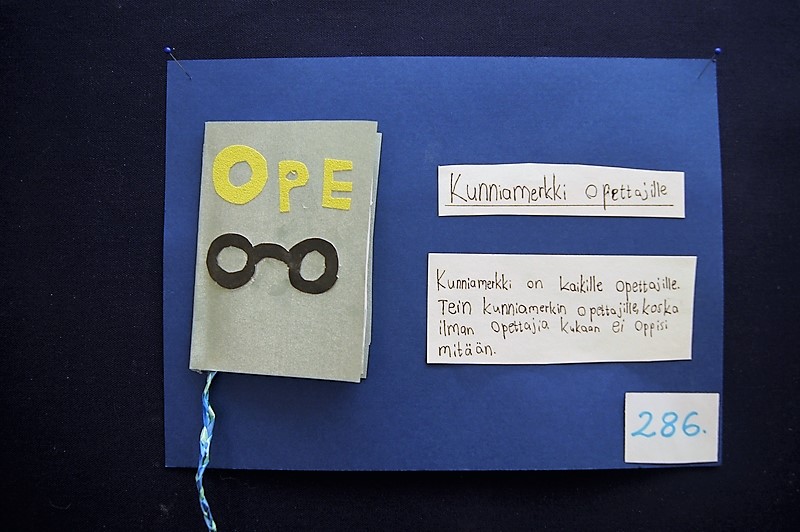 OPE
Kunniamerkki opettajille
Kunniamerkki on kaikille opettajille.
Tein kunniamerkin opettajille, koska
ilman opettajia kukaan ei oppisi
mitään.
286.